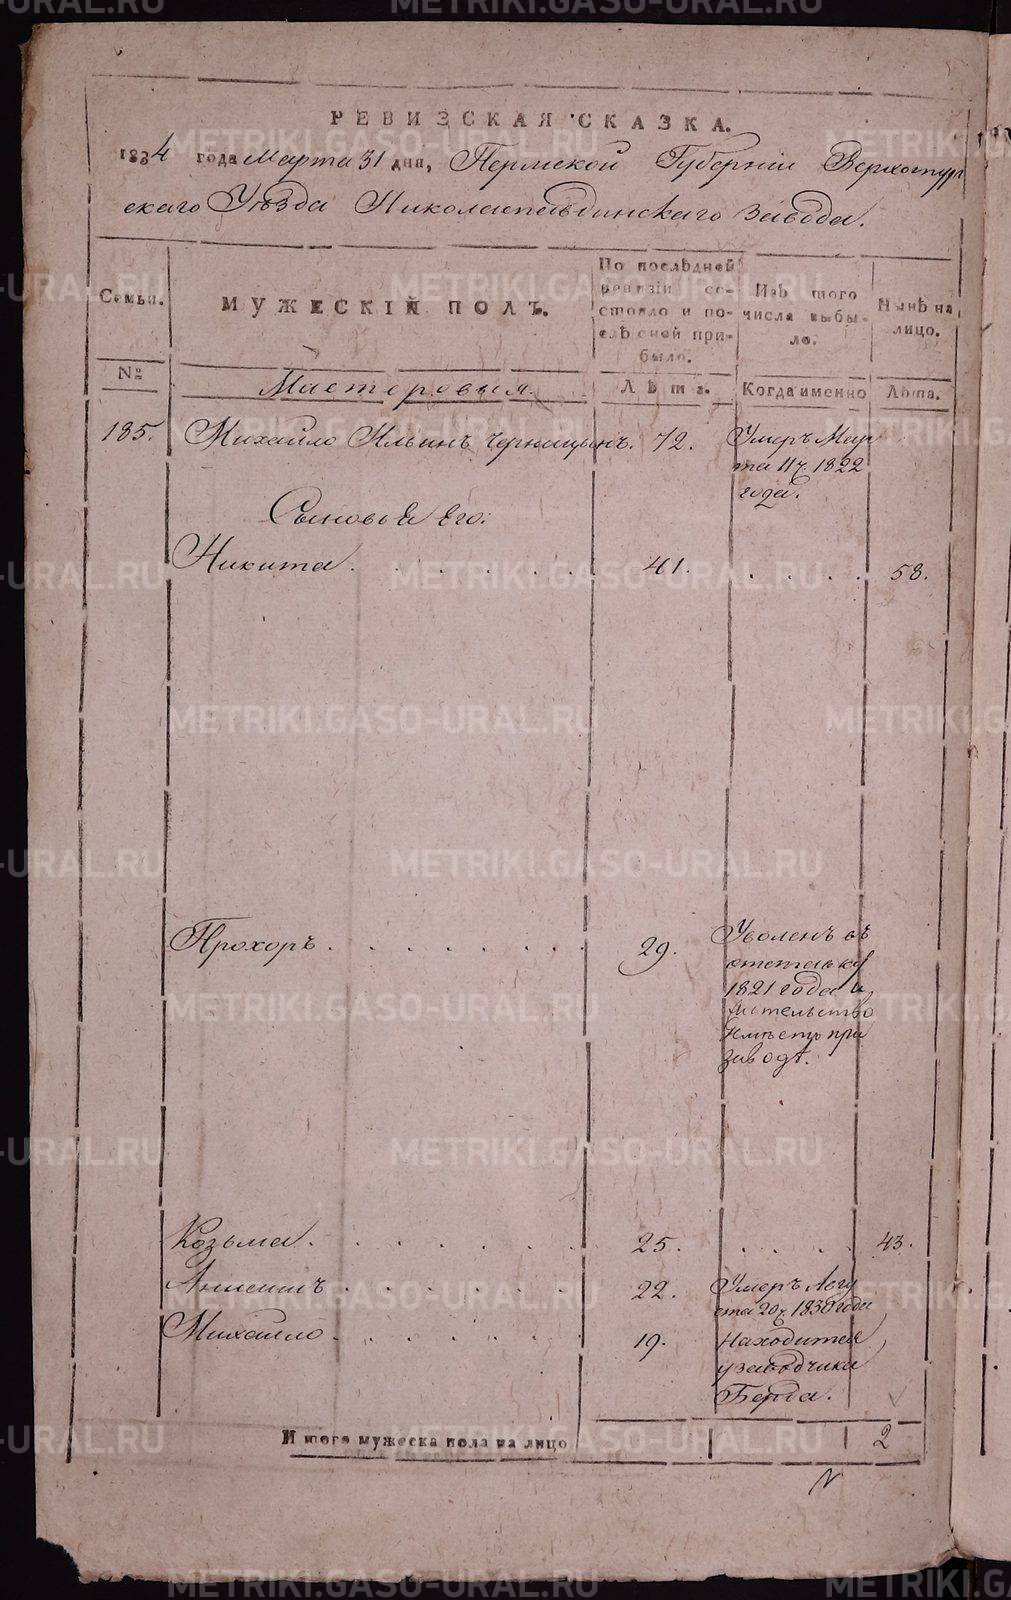 METRIKI.GASO-URAL.RU
РЕВИЗСКАЯ СКАЗКА.
1834 года Марта 31 дня, Пермской Губернiи Верхотур
скаго Уѣзда Николаепавдинскаго завода.
Семьи.
МУЖЕСКIЙ ПОЛЪ.
По послѣдней
ревизiи со-
стояло и по-
слѣ сней при-
было.
Изъ того
числа выбы-
ло.
Нынѣ на
лицо.
№
Мастеровыя.
Лѣта.
Когда именно
Лѣта.
185. Михайло Ильинъ Черницынъ. 72. Умеръ Мар
та 11 ч. 1822
года.
Сыновья Его:
Никита. 41. 58.
Прохоръ. 29. Уволенъ въ
отставку
1821 года и
жительство
Имѣетъ при
заводѣ.
Козьма. 25. 43.
Анисимъ. 22. Умеръ Авгу
ста 20 ч. 1830 года
Михайло. 19. Находится
у заводчика
Берда.
Итого мужеска пола на лицо 2